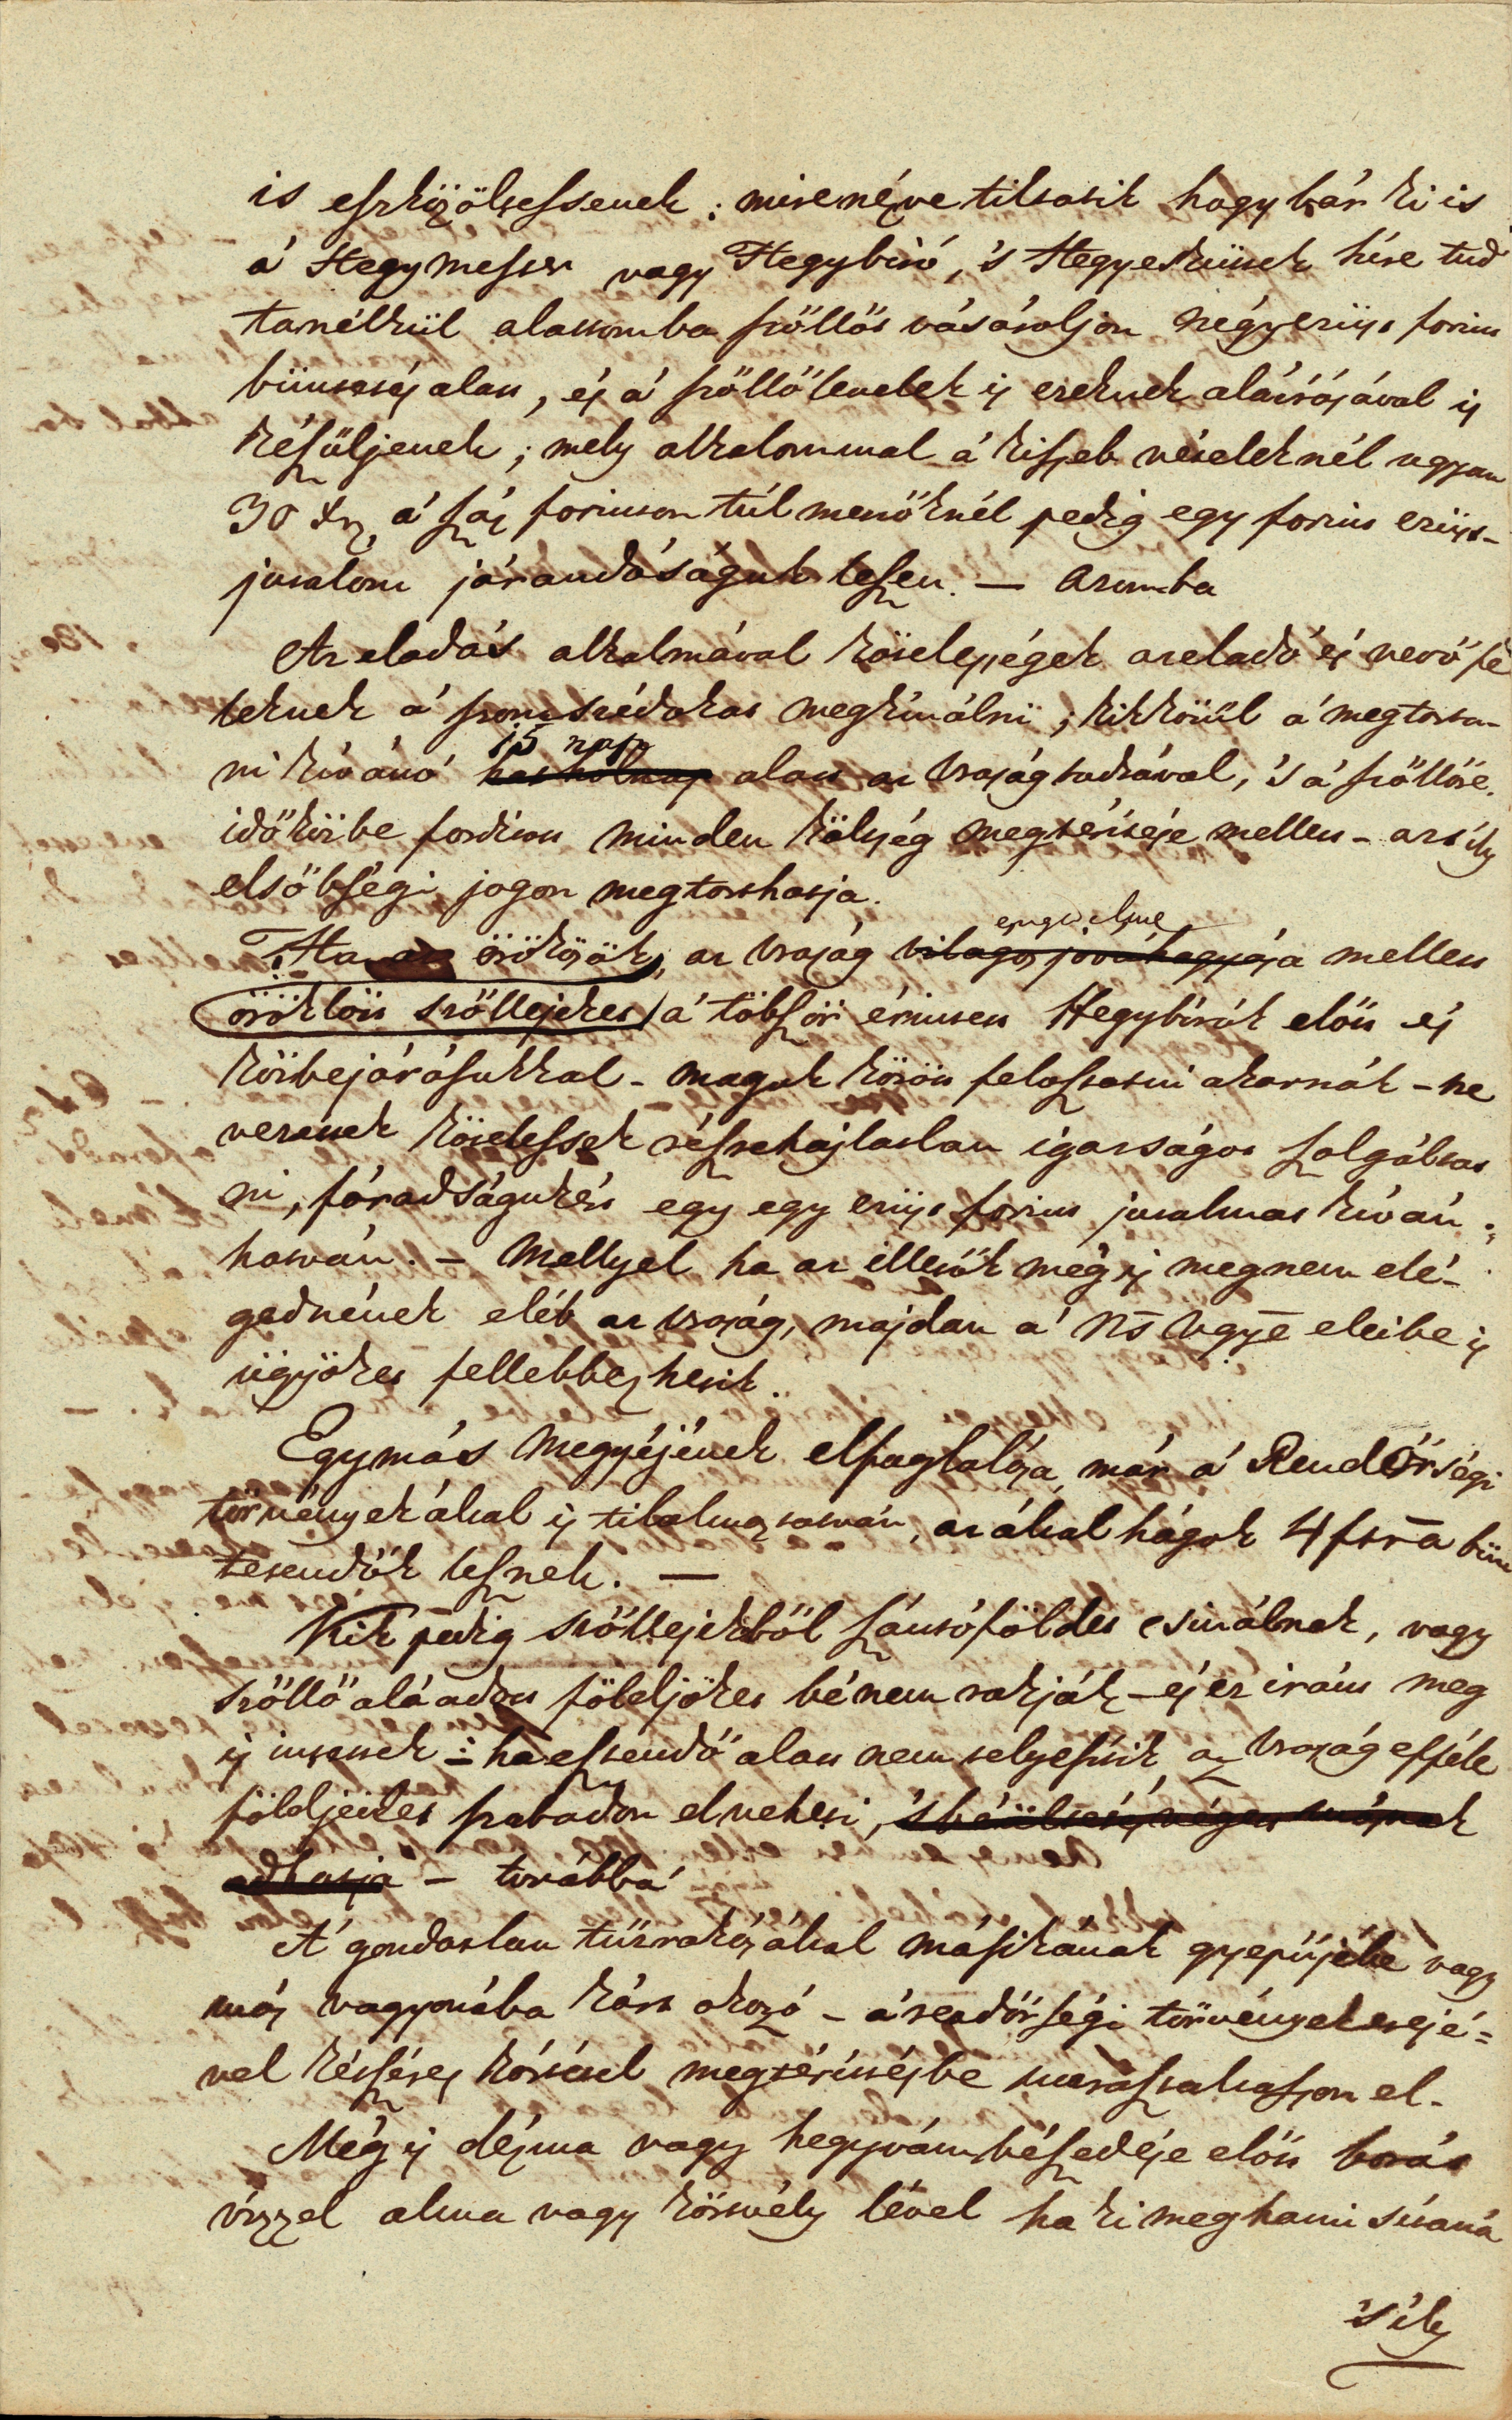 is eszközöltessenek; mire nézve tiltatik hogy bár ki is
á Hegymester vagy Hegybiró, 's Hegyesküttek hire tud
ta nélkül alattomba szőllőt vásároljon négy ezüst forint
büntetés alatt, és á szőllőlevelek is ezeknek aláirásával is
készüljenek; mely alkalommal á kissebb vételeknél ugyan
30 xr, á száz forinton túl menőknél pedig egy forint ezüst
jutalom járandóságuk leszen. — Azomba
Az eladás alkalmával kötelességek az eladó és vevő fe
leknek á szomszédokat megkinálni; kik közül á megtarta-
ni kivánó 15 nap
hat holnap alatt az Uraság tudtával, 's á szőllőre
időközbe fordított minden költség megtéritése mellett – az ily
elsőbségi jogon megtarthatja.
engedelme
Ha az örökösök, az Uraság világos jováhagyása mellett
öröklött szőllejeket á többször érintett Hegybirák előtt és
közbejárásukkal – maguk között felosztatni akarnák – ne
vezettek kötelesek részrehajlatlan igasságot szolgáltat
ni, fáradságukért egy egy ezüst forint jutalmat kiván-
hatván. – Mellyel ha az illetők még is meg nem elé-
gednének eléb az Uraság, majdan a' Ns Vgye eleibe is
ügyöket fellebbezhetik.
Egymás Megyéjének elfoglalása már á Rendőrségi
törvények által is tilalmaztatván, az áltál hágok 4 frtra bün
tetendők lesznek. —
Kik pedig szőllejekből szántóföldet csinálnak, vagy
szőllő alá adott földjöket bé nem rakják – és ez iránt meg
is intettek – ha esztendő alatt nem telyesitik az Uraság efféle
földjeiket szabadon elveheti, 's béültetés végett másnak
adhatja – továbbá
Á gondatlan tűzrakás által másikának gyepűjébe vagy
más vagyonába kárt okozó – á rendőrségi törvények erejé-
vel készéres kárának megtéritésébe marasztaltasson el.
Még is dézma vagy hegyvám bészedése előtt borát
vizzel alma vagy körtvély lével ha ki meghamisitaná
's ily